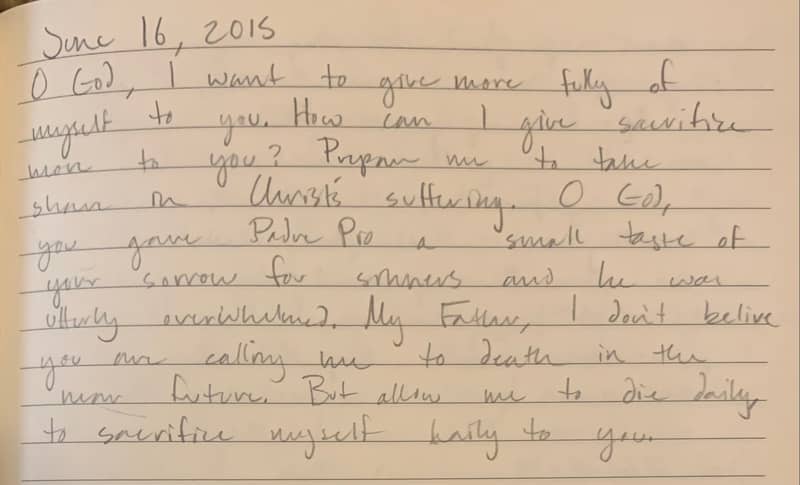 June 16, 2015
O God, I want to give more fully of
myself to you. How can I give sacrifice
more to you? Prepare me to take
share in Christ's suffering. O God,
you gave Padre Pio a small taste of
your sorrow for sinners and he was
utterly overwhelmed. My Father, I don't belive
you are calling me to death in the
near future. But allow me to die daily,
to sacrifice myself to you.